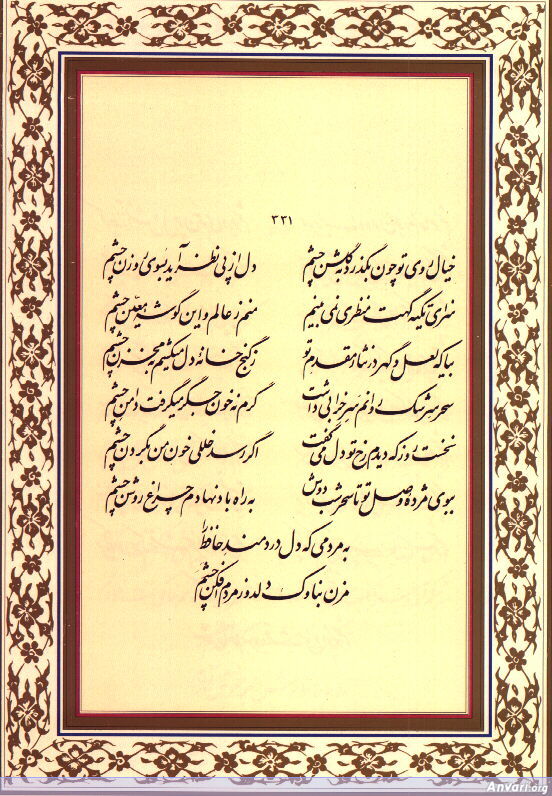 ۳۳۱
خیال روی تو چون بگذرد به گلشن چشم    دل از پی نظر آید بسوی روزن چشم
سزای تکیه گهت منظری نمی بینم    منم ز عالم و این گوشه معین چشم
بیا که لعل و گهر در نثار مقدم تو    ز گنج خانه دل میکشم به مخزن چشم
سحر سرشک روانم سر خرابی داشت    گرم نه خون جگر میگرفت دامن چشم
نخست روز که دیدم رخ تو دل می گفت    اگر رسد خللی خون من بگردن چشم
ببوی مژده وصل تو تا سحر شب دوش    به راه باد نهادم چراغ روشن چشم
به مردمی که دل دردمند حافظ را
مزن بناوک دلدوز مردم افکن چشم
Anvari.org